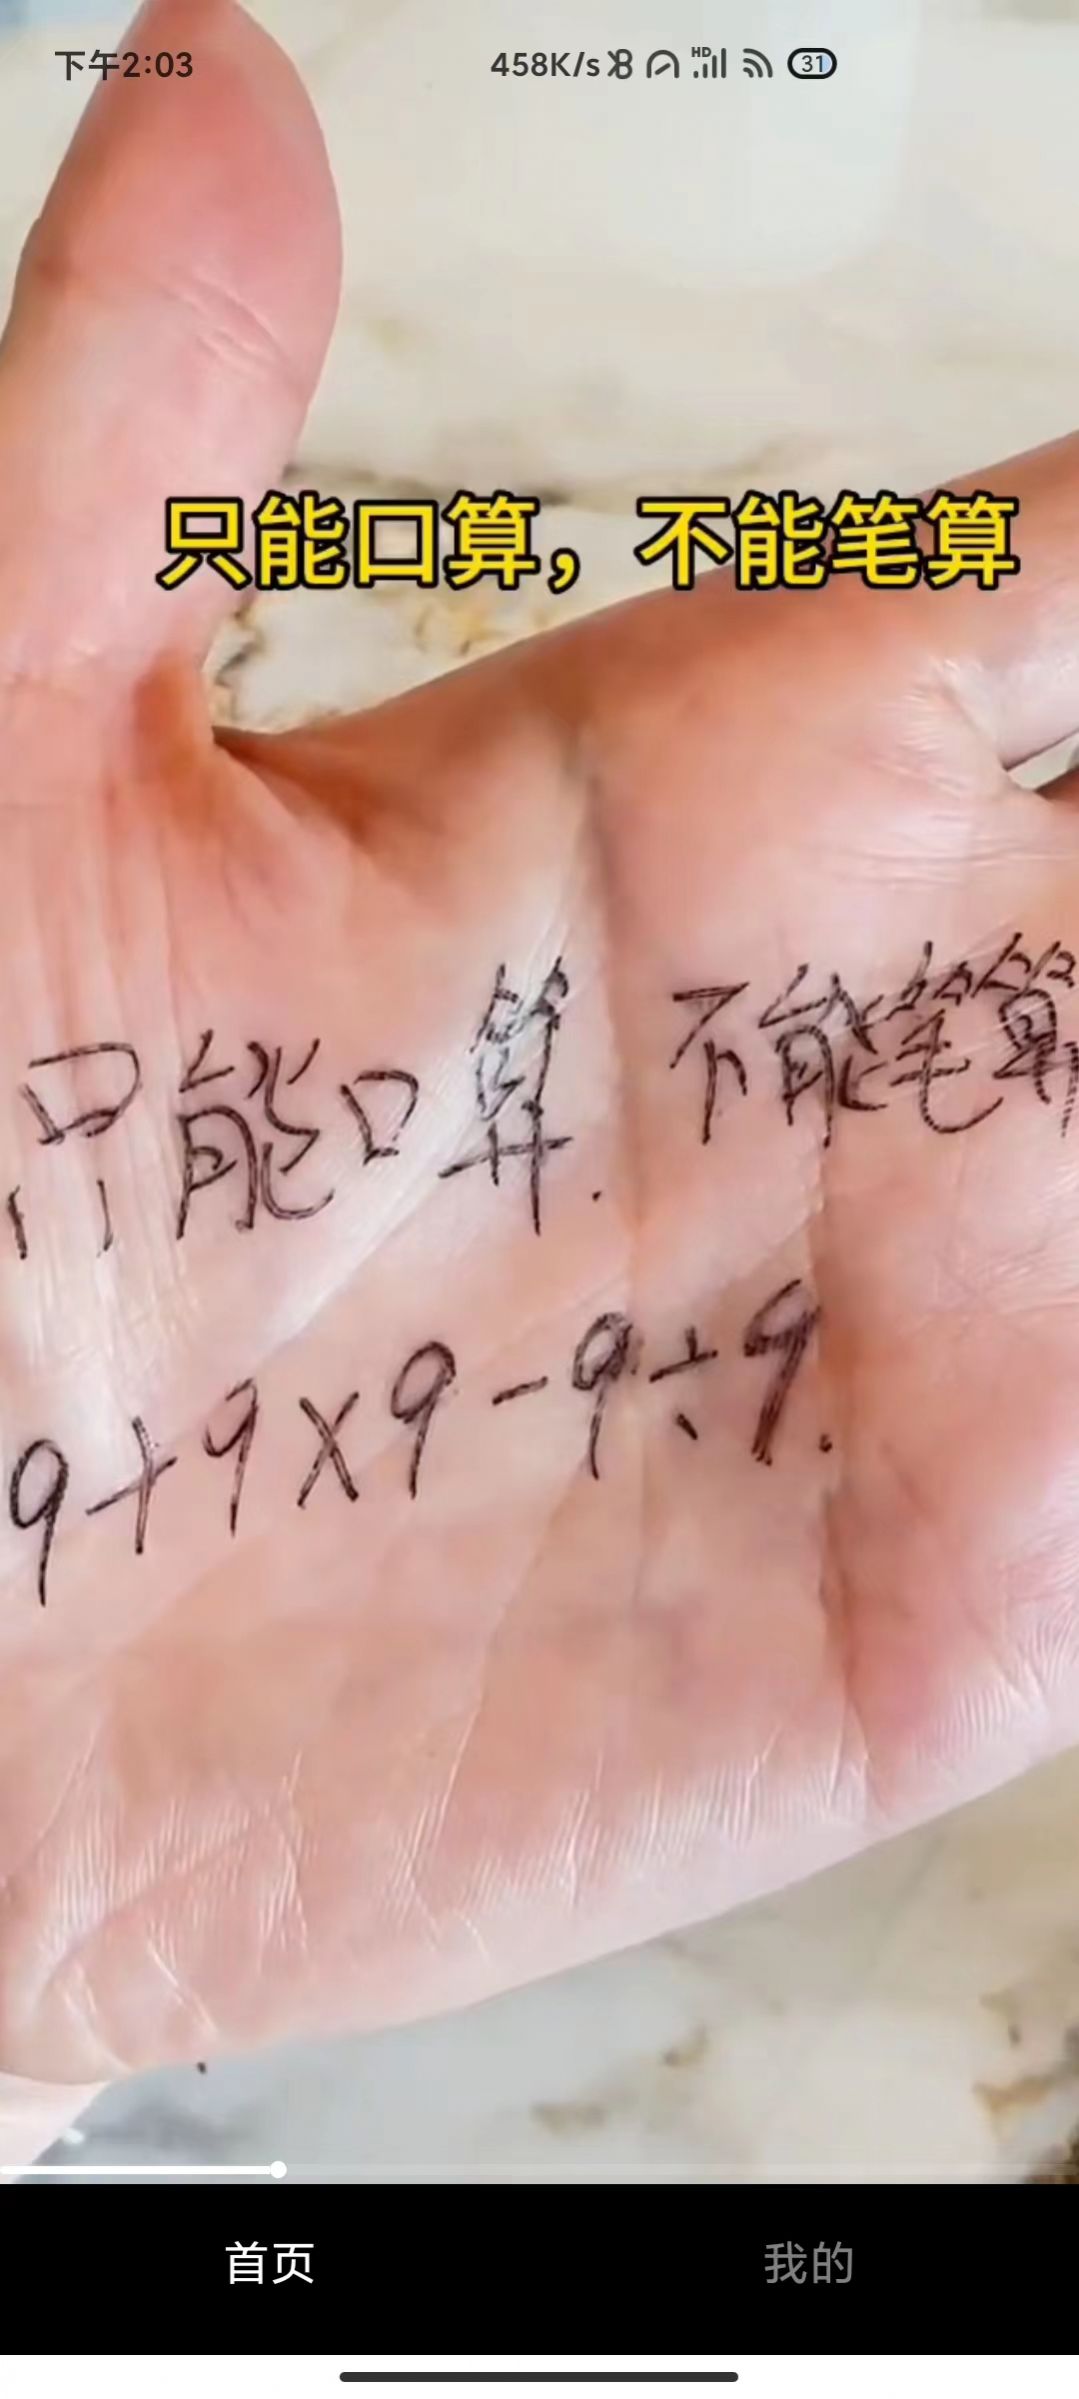 下午2:03 458K/s HD 31
只能口算，不能笔算
只能口算. 不能笔算
9+9×9-9÷9.
首页 我的